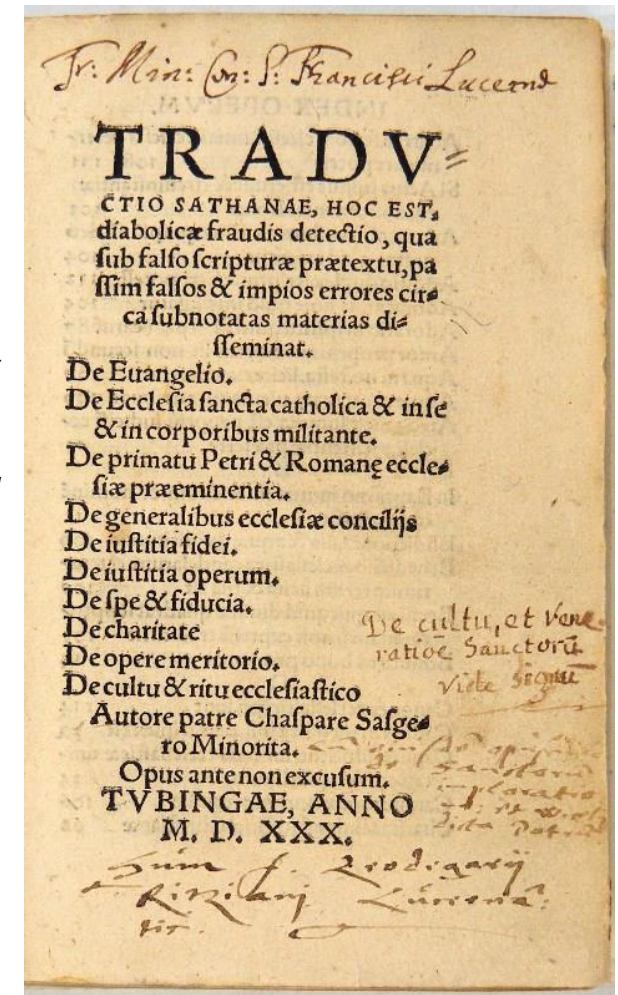 Fr: Min: Con: S: Francisci Lucernæ
TRADV⸗
CTIO SATHANAE, HOC EST,
diabolicæ fraudis detectio, qua
ſub falſo ſcripturæ prætextu, pa
ſſim falſos & impios errores cir⸗
ca ſubnotatas materias di⸗
ſſeminat.
De Euangelio.
De Eccleſia ſancta catholica & in ſe
& in corporibus militante.
De primatu Petri & Romanę eccle⸗
ſiæ præeminentia.
De generalibus eccleſiæ concilijs
De iuſtitia fidei.
De iuſtitia operum.
De ſpe & fiducia.
De charitate
De opere meritorio.
De cultu & ritu eccleſiaſtico
De cultu, et Vene
ratiōe Sanctorū
vide Signū
Autore patre Chaſpare Saſge⸗
ro Minorita.
Opus ante non excuſum.
TVBINGAE, ANNO
M. D. XXX.
Sum f. Leodegarij
Ritziani Lucernā: